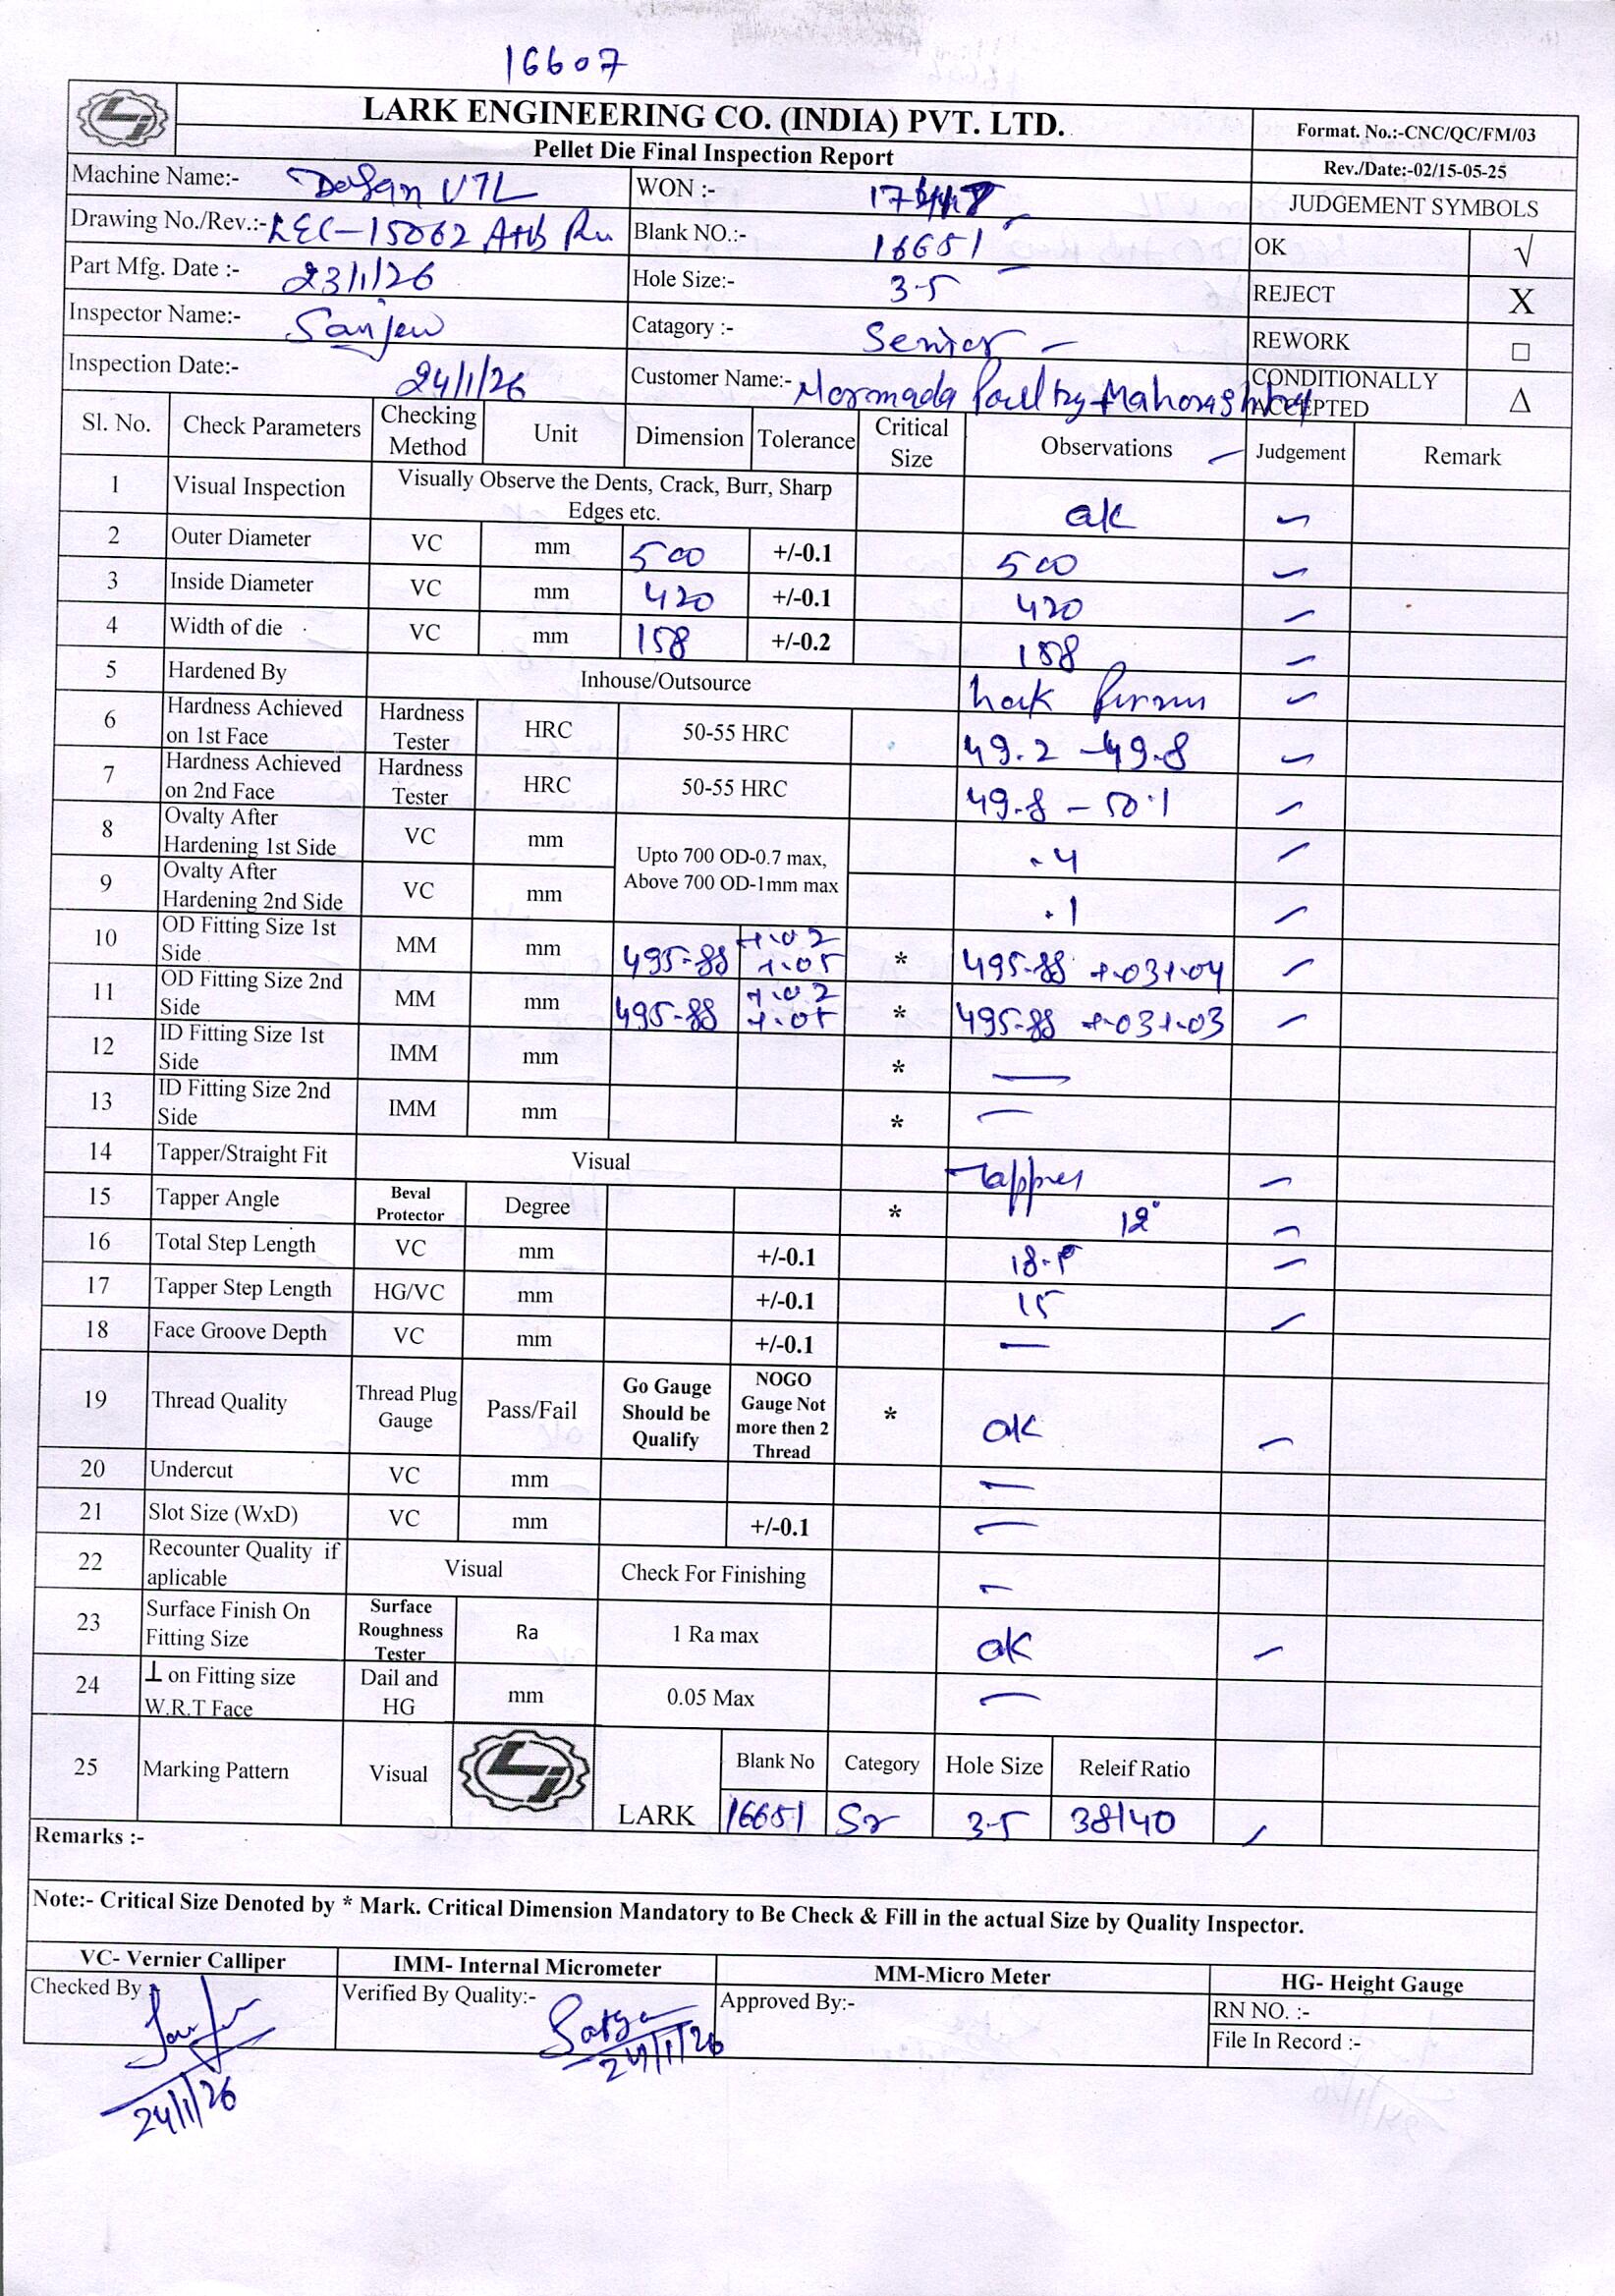 16607
LARK ENGINEERING CO. (INDIA) PVT. LTD.
Pellet Die Final Inspection Report
Format. No.:-CNC/QC/FM/03
Rev./Date:-02/15-05-25
Machine Name:- VTL
WON :-
JUDGEMENT SYMBOLS
Drawing No./Rev.:- LEC-15062 A+B
Blank NO.:- 16651
OK √
Part Mfg. Date :- 23/1/26
Hole Size:- 3.5
REJECT X
Inspector Name:- Sanjeev
Catagory :- Senior
REWORK □
Inspection Date:- 24/1/26
Customer Name:- Normada Poultry Maharashtra
CONDITIONALLY ACCEPTED Δ
Sl. No. Check Parameters Checking Method Unit Dimension Tolerance Critical Size Observations Judgement Remark
1 Visual Inspection Visually Observe the Dents, Crack, Burr, Sharp Edges etc. ok
2 Outer Diameter VC mm 500 +/-0.1 500
3 Inside Diameter VC mm 420 +/-0.1 420
4 Width of die VC mm 158 +/-0.2 158
5 Hardened By Inhouse/Outsource
6 Hardness Achieved on 1st Face Hardness Tester HRC 50-55 HRC 49.2 - 49.8
7 Hardness Achieved on 2nd Face Hardness Tester HRC 50-55 HRC 49.8 - 50.1
8 Ovalty After Hardening 1st Side VC mm Upto 700 OD-0.7 max, Above 700 OD-1mm max .4
9 Ovalty After Hardening 2nd Side VC mm .1
10 OD Fitting Size 1st Side MM mm 495.88 +.02 +.05 * 495.88 +.03+.04
11 OD Fitting Size 2nd Side MM mm 495.88 +.02 +.05 * 495.88 +.03+.03
12 ID Fitting Size 1st Side IMM mm * —
13 ID Fitting Size 2nd Side IMM mm * —
14 Tapper/Straight Fit Visual Tapper
15 Tapper Angle Beval Protector Degree * 12°
16 Total Step Length VC mm +/-0.1
17 Tapper Step Length HG/VC mm +/-0.1 15
18 Face Groove Depth VC mm +/-0.1 —
19 Thread Quality Thread Plug Gauge Pass/Fail Go Gauge Should be Qualify NOGO Gauge Not more then 2 Thread * ok
20 Undercut VC mm —
21 Slot Size (WxD) VC mm +/-0.1 —
22 Recounter Quality if aplicable Visual Check For Finishing —
23 Surface Finish On Fitting Size Surface Roughness Tester Ra 1 Ra max ok
24 ⊥ on Fitting size W.R.T Face Dail and HG mm 0.05 Max —
25 Marking Pattern Visual LARK Blank No Category Hole Size Releif Ratio
16651 Sr 3.5 38/40
Remarks :-
Note:- Critical Size Denoted by * Mark. Critical Dimension Mandatory to Be Check & Fill in the actual Size by Quality Inspector.
VC- Vernier Calliper IMM- Internal Micrometer MM-Micro Meter HG- Height Gauge
Checked By Verified By Quality:- Satya Approved By:- RN NO. :-
24/1/26 File In Record :-
24/1/26